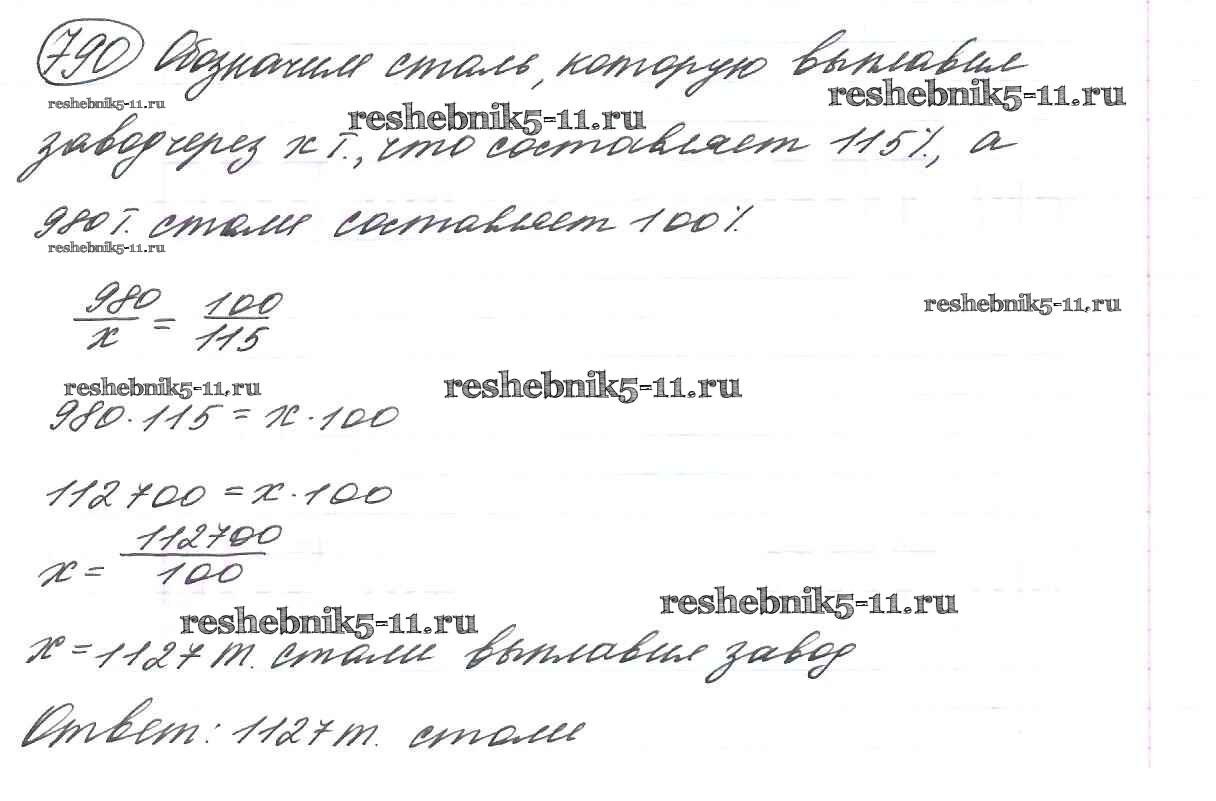 790 Обозначим сталь, которую выплавил
reshebnik5-11.ru
reshebnik5-11.ru
reshebnik5-11.ru
завод через x т., что составляет 115%, а
980 т. стали составляет 100%.
reshebnik5-11.ru
980/x = 100/115
reshebnik5-11.ru
reshebnik5-11.ru
reshebnik5-11.ru
980 · 115 = x · 100
112700 = x · 100
x = 112700/100
reshebnik5-11.ru
reshebnik5-11.ru
x = 1127 т. стали выплавил завод
Ответ: 1127 т. стали